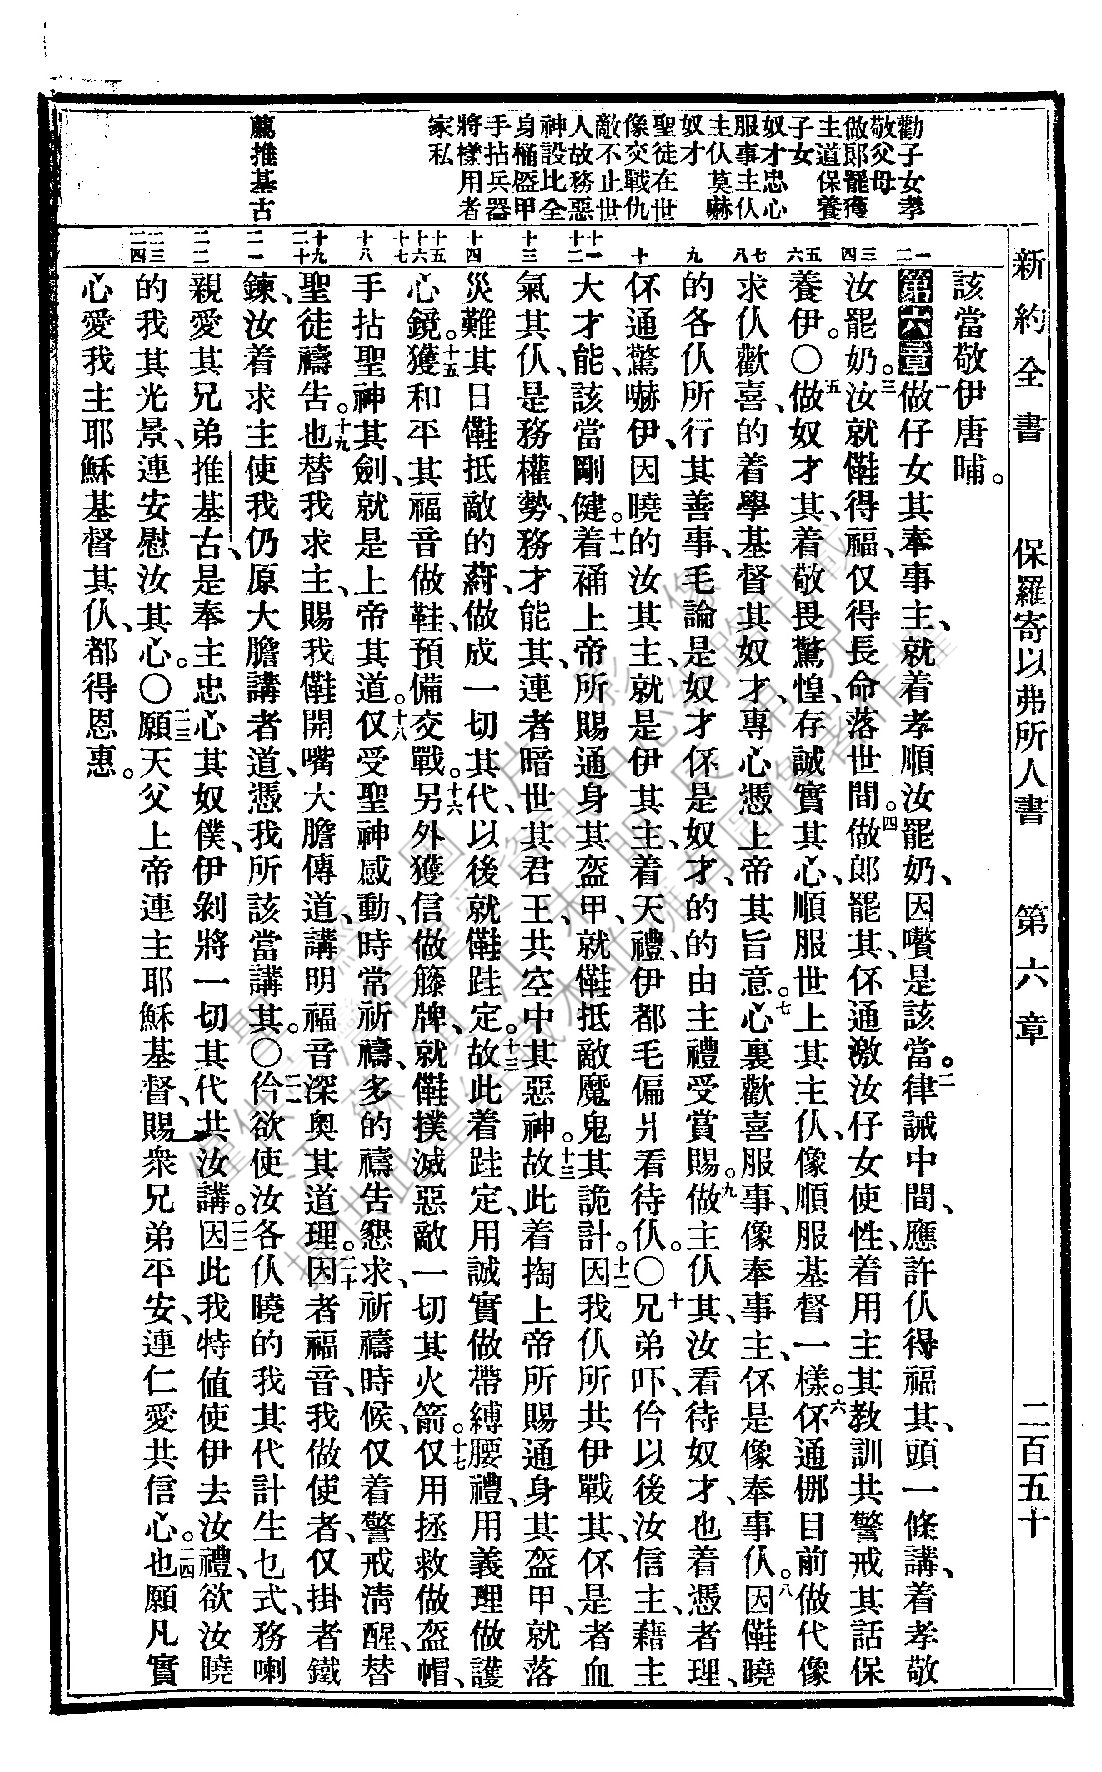 新約全書　保羅寄以弗所人書　第六章　二百五十
勸子女孝
敬父母
做郎罷獲
主道保養
子女
奴才忠心
服事主仈
主仈莫嚇
奴才
聖徒在世
像交戰仇
敵不止世
人故務惡
神設比全
身桶盔甲
手拈兵器
將樣用者
家私
薦推基古
該當敬伊唐晡。
第六章一做仔女其、奉事主、就着孝順汝罷奶、因囋是該當。二律誡中間、應許仈得福其、頭一條講、着孝敬
汝罷奶、三汝就𪜶得福、仅得長命落世間。四做郎罷其、伓通激汝仔女使性、着用主其教訓共警戒其話保
養伊。〇五做奴才其、着敬畏驚惶、存誠實其心、順服世上其主仈、像順服基督一樣。六伓通㑚目前做代像
求仈歡喜、的着學基督其奴才、專心憑上帝其旨意。七心裏歡喜服事、像奉事主、伓是像奉事仈。八因𪜶曉
的各仈所行其善事、毛論是奴才伓是奴才、的的由主禮受賞賜。九做主仈其、汝看待奴才、也着憑者理、
伓通驚嚇伊、因曉的汝其主、就是伊其主、着天禮、伊都毛偏爿看待仈。〇十兄弟吓、仱以後汝信主、藉主
大才能、該當剛健。十一着桶上帝所賜通身其盔甲、就𪜶抵敵魔鬼其詭計。十二因我仈所共伊戰其、伓是者血
氣其仈、是務權勢、務才能其、連者暗世其君王、共空中其惡神。十三故此着掏上帝所賜通身其盔甲、就落
災難其日𪜶抵敵的、蔚做成一切其代、以後就𪜶跬定。十四故此着跬定、用誠實做帶縛腰禮、用義理做護
心鏡。十五獲和平其福音做鞋、預備交戰。十六另外獲信做籐牌、就𪜶撲滅惡敵一切其火箭。十七仅用拯救做盔帽、
手拈聖神其劍、就是上帝其道。十八仅受聖神感動、時常祈禱、多的禱告懇求、祈禱時候、仅着警戒清醒、替
聖徒禱告。十九也替我求主、賜我𪜶開嘴大膽傳道、講明福音深奧其道理。二十因者福音、我做使者、仅掛者鐵
鍊、汝着求主使我仍原大膽講者道、憑我所該當講其。〇二一仱欲使汝各仈曉的我其代計生乜式、務喇
親愛其兄弟推基古、是奉主忠心其奴僕、伊剝將一切其代共汝講。二二因此我特值使伊去汝禮、欲汝曉
的我其光景、連安慰汝其心。〇二三願天父上帝連主耶穌基督、賜衆兄弟平安、連仁愛共信心。二四也願凡實
心愛我主耶穌基督其仈、都得恩惠。